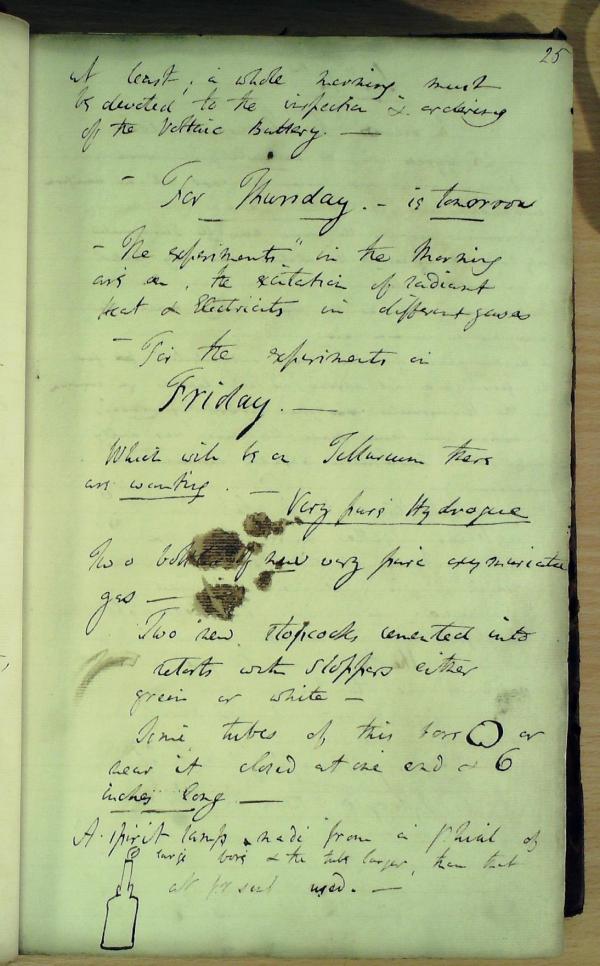 25
at least, a whole morning must
be devoted to the inspection & ordering
of the Voltaic Battery. —
— For Thursday. – is tomorrow
– The experiments in the Morning
are on, the excitation of radiant
heat & Electricity in different gases
— For the experiments on
Friday. —
Which will be on Tellurium there
are wanting. —
Very pure Hydrogene
Two bottles of new very pure oxymuriatic
gas —
Two new stopcocks cemented into
retorts with stoppers either
green or white —
Some tubes of this bore O or
near it closed at one end & 6
inches long —
A spirit lamp made from a phial of
large bore & the tube larger, than that
at present used. —